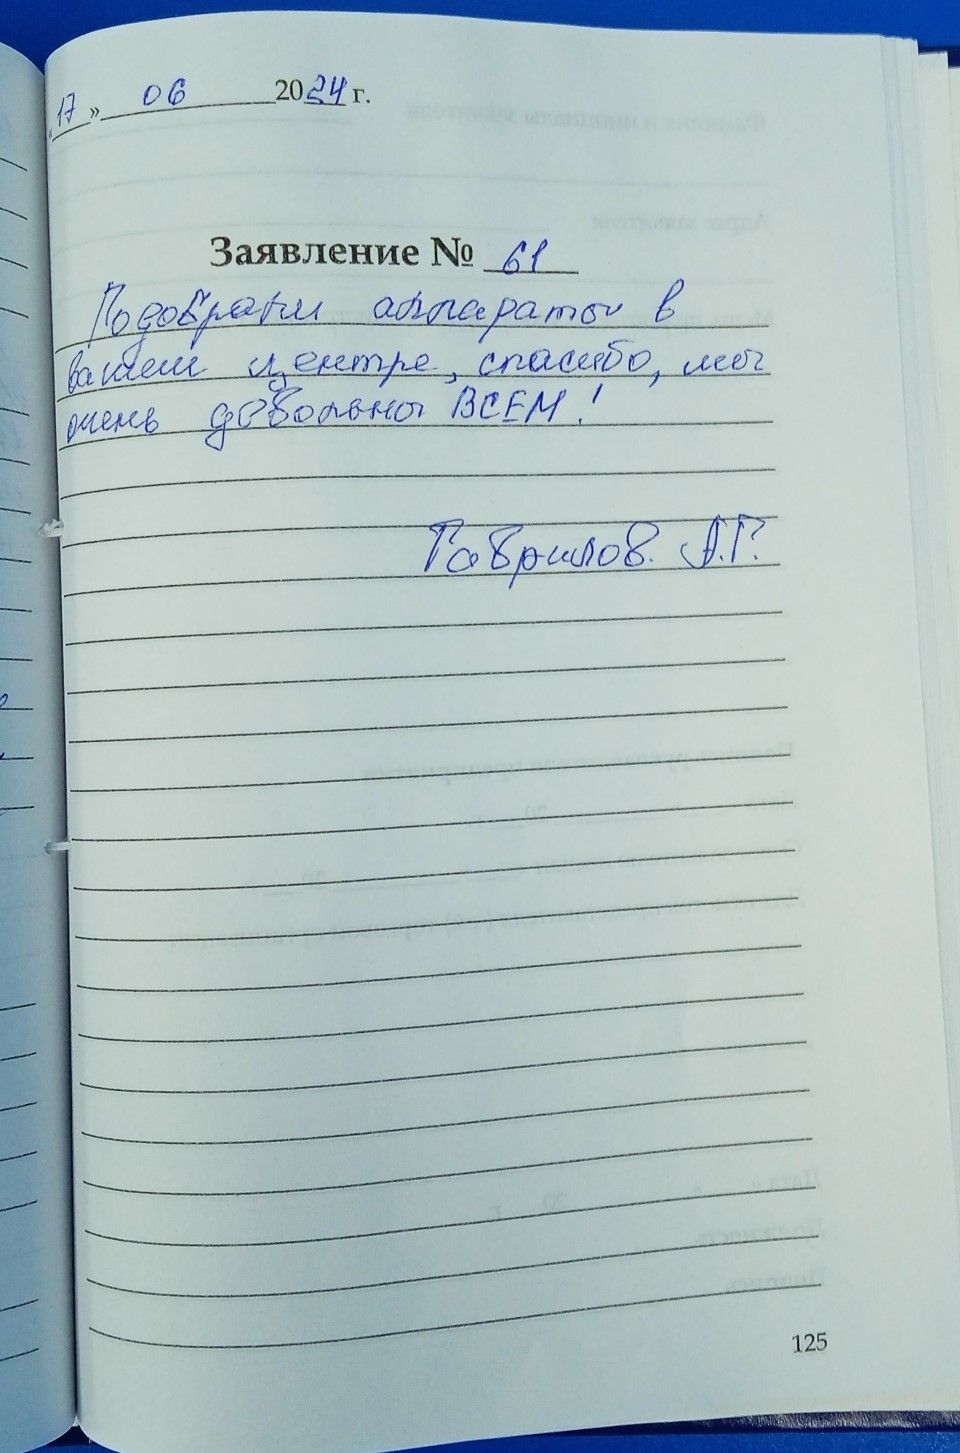 «17» 06 2024 г.
Заявление № 61
Подобрали аппараты в
вашем центре, спасибо, мы
очень довольны ВСЕМ!
Гаврилов. А.Г.
125